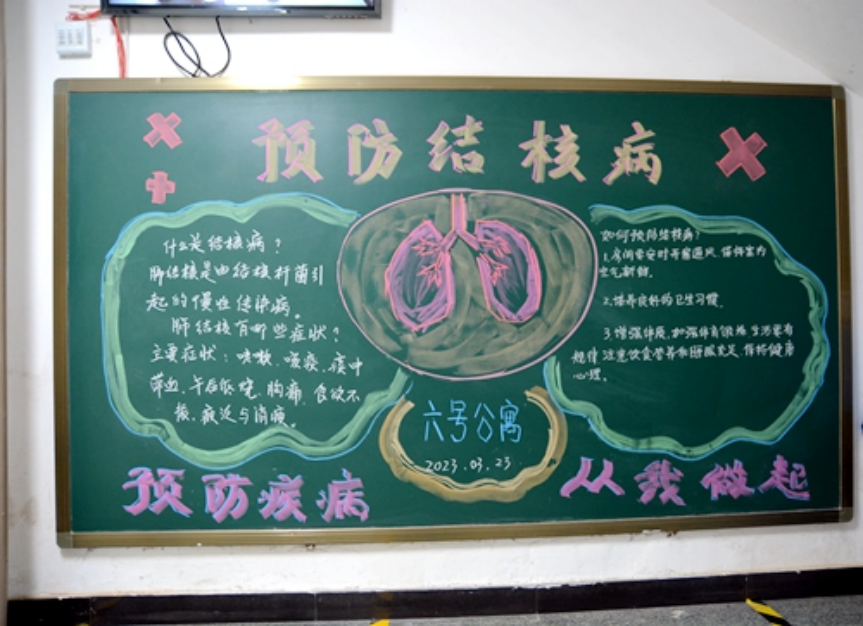 预防结核病
什么是结核病？
肺结核是由结核杆菌引
起的慢性传染病。
肺结核有哪些症状？
主要症状：咳嗽、咳痰、痰中
带血、午后低烧、胸痛、食欲不
振、疲乏与消瘦。
如何预防结核病？
1.房间常安时开窗通风、保持室内
空气新鲜。
2.培养良好的卫生习惯、
3.增强体质、加强体育锻炼 生活要有
规律 注意饮食营养和睡眠充足、保持健康
心理。
六号公寓
2023.03.23
预防疾病 从我做起